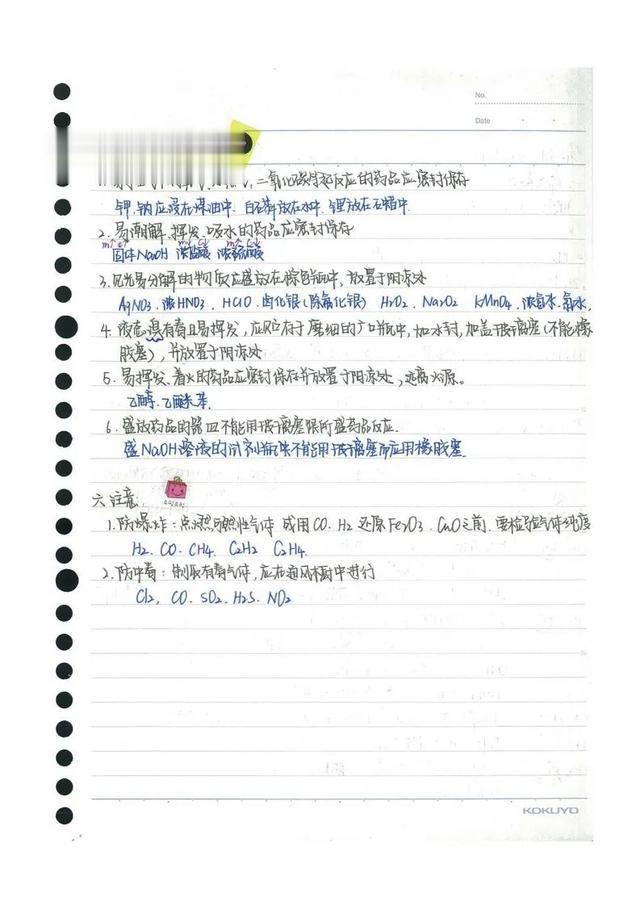 No.
Date
二氧化碳等起反应的药品应密封保存
钾.钠应浸在煤油中. 白磷放在水中. 锂放在石蜡中.
2. 易潮解、挥发、吸水的药品应密封保存
m↑c↓ m↓c↓ m↑c↓
固体NaOH 浓盐酸 浓硫酸
3. 见光易分解的物质应盛放在棕色瓶中, 放置于阴凉处
AgNO3. 浓HNO3. HClO. 卤化银(除氟化银) H2O2. Na2O2 KMnO4. 浓氨水. 氯水.
4. 液态溴有毒且易挥发, 应贮存于磨细的广口瓶中, 加水封, 加盖玻璃塞(不能橡
胶塞), 并放置于阴凉处
5. 易挥发、着火的药品应密封保存并放置于阴凉处, 远离火源。
乙醇. 乙醚 苯.
6. 盛放药品的器皿不能用玻璃塞跟所盛药品反应.
盛NaOH溶液的试剂瓶不能用玻璃塞而应用橡胶塞.
六 注意
1. 防爆炸: 点燃可燃性气体 或用 CO. H2 还原Fe2O3. CuO之前, 要检验气体纯度
H2. CO. CH4. C2H2 C2H4.
2. 防中毒: 制取有毒气体, 应在通风橱中进行
Cl2, CO. SO2. H2S. NO2
KOKUYO